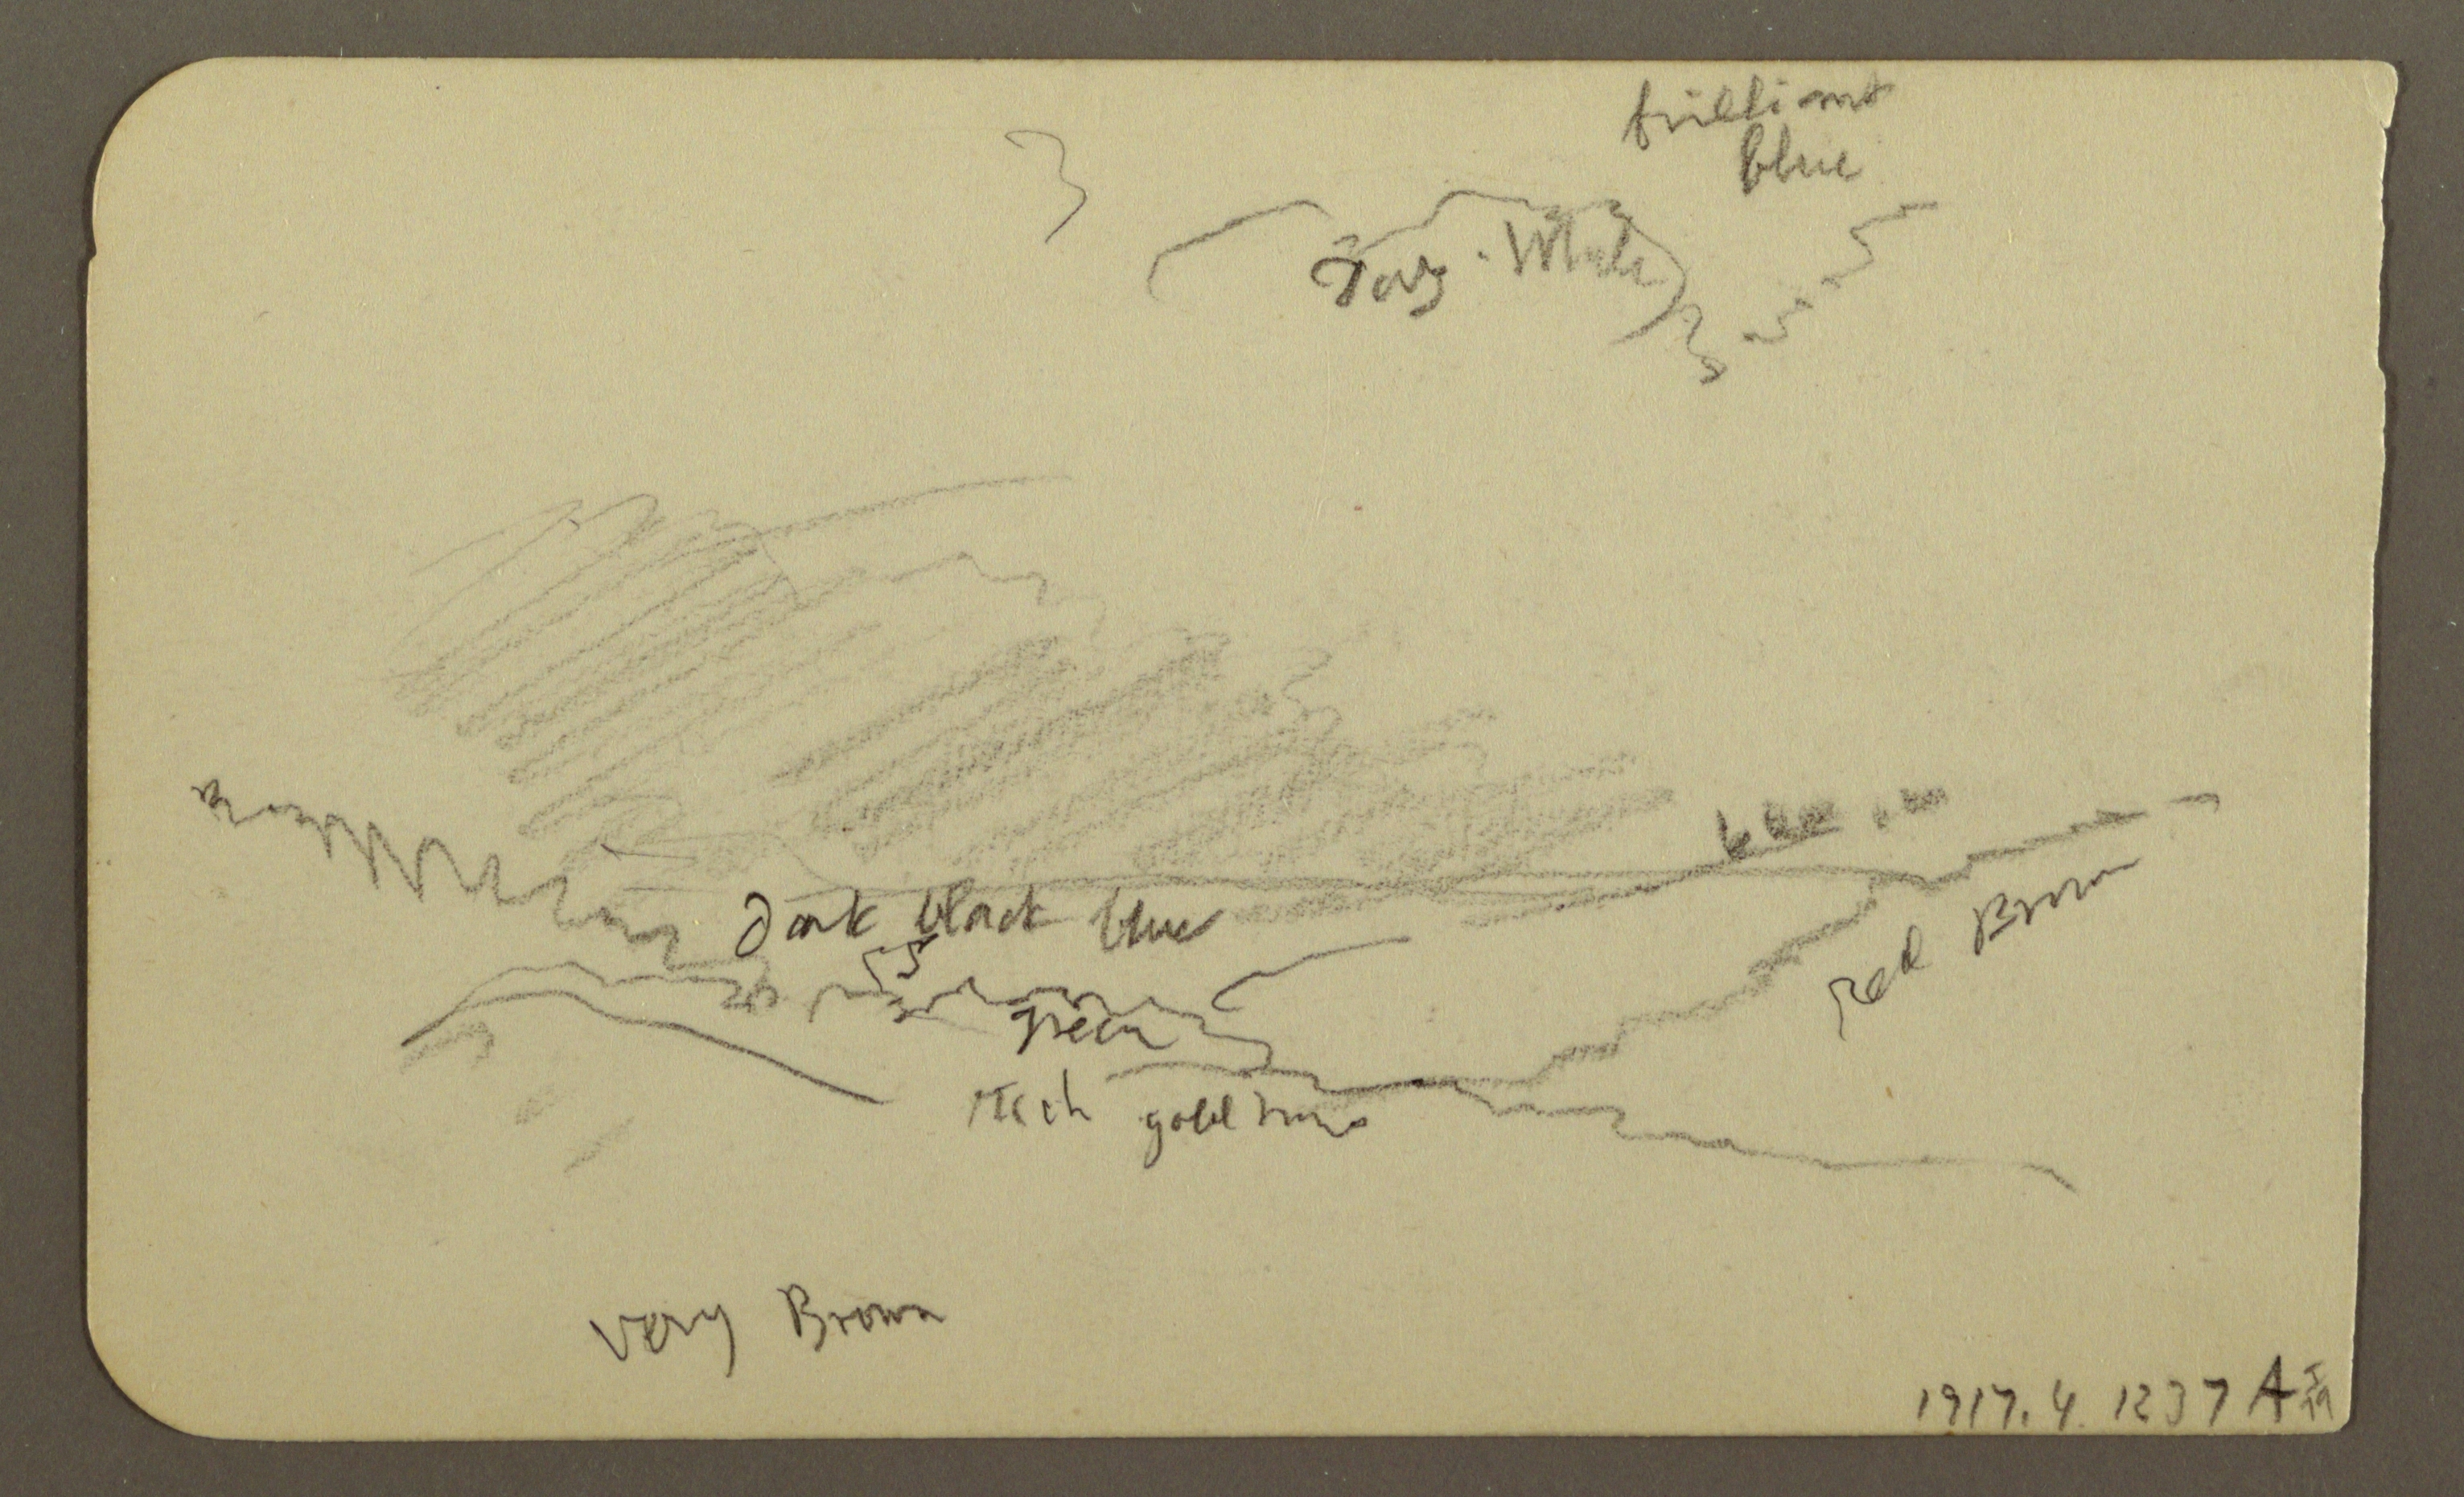 brilliant
blue
very . White
blue
Dark black blue
Red Brown
green
rich gold
very Brown
1917.4.1237 A